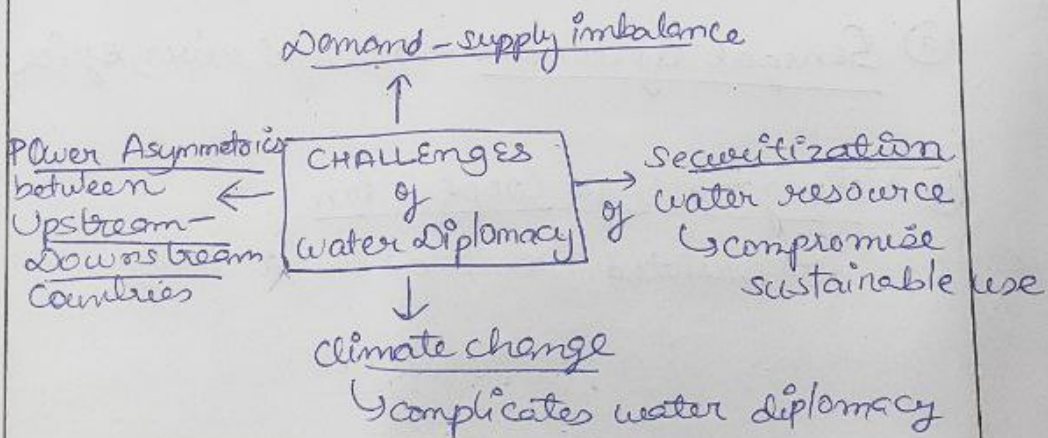 Demand-supply imbalance
Power Asymmetrics
between
Upstream-
Downstream
Countries
CHALLENGES
of
water Diplomacy
Securitization
of water resource
↳compromise
sustainable use
Climate change
↳complicates water diplomacy